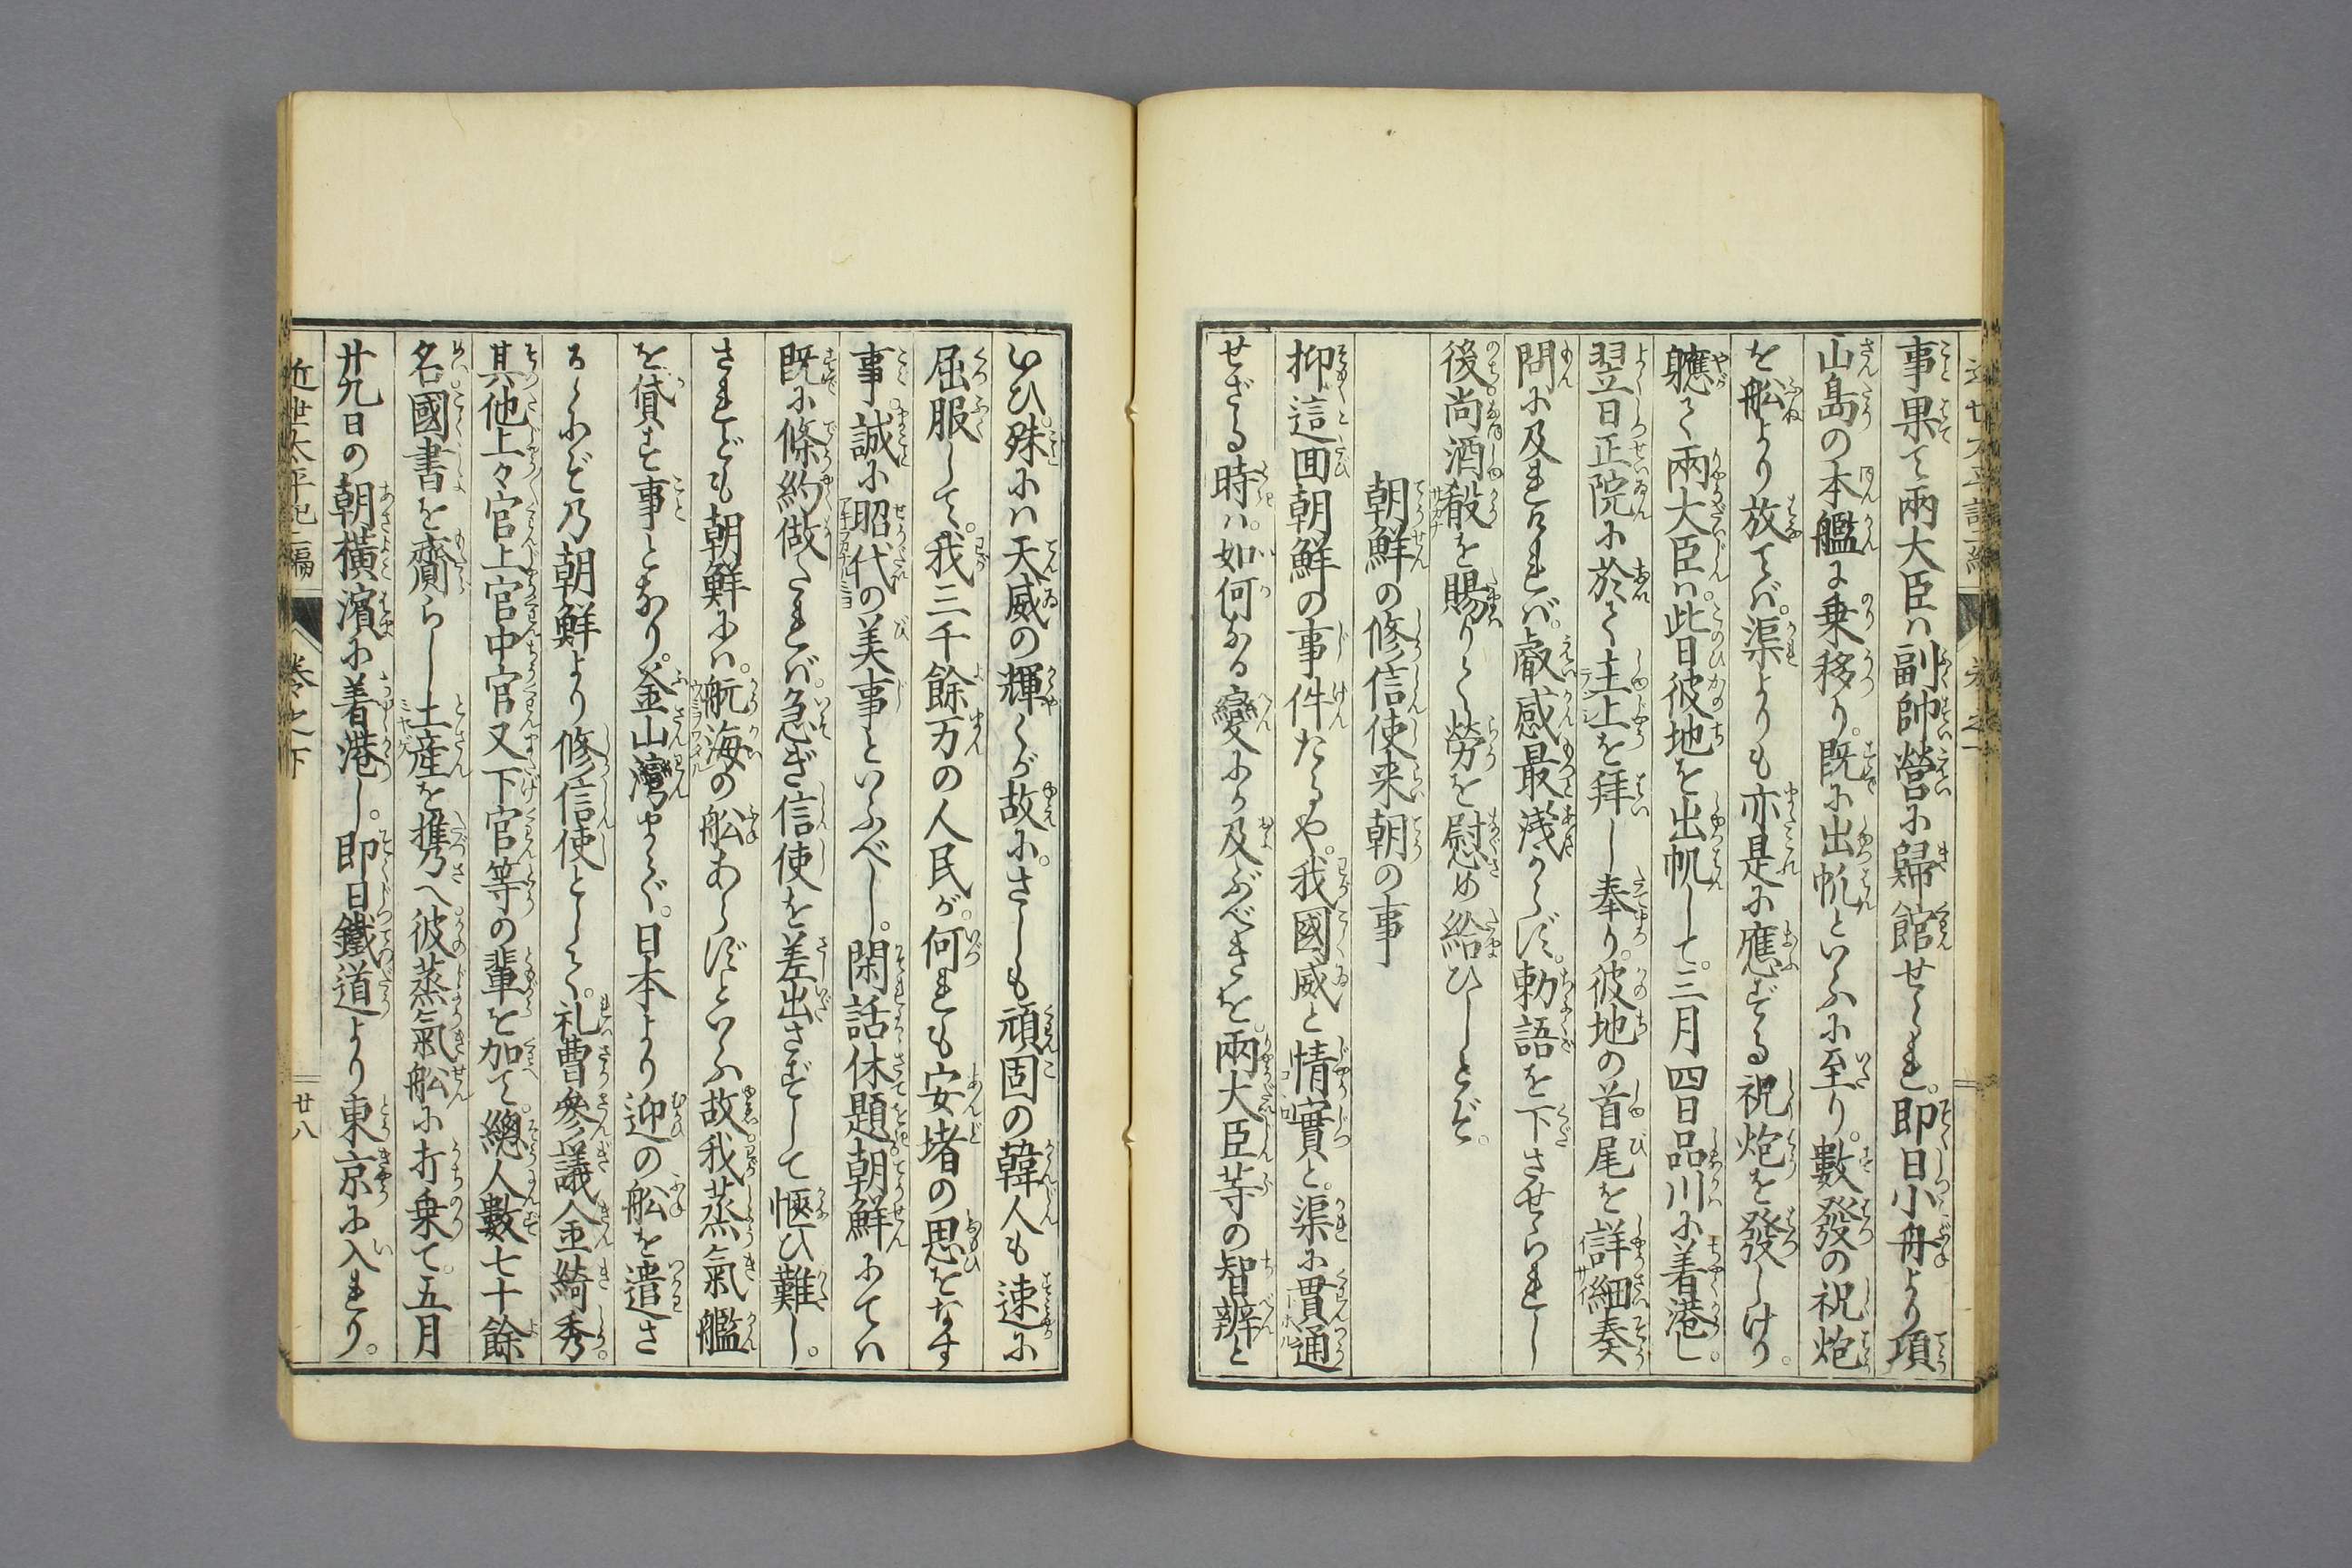 事果て兩大臣ハ副帥營に歸館せられ。即日小舟より項
山島の本艦に乗移り。既に出帆といふに至り。數發の祝炮
を舩より放てバ。渠よりも亦是に應ずる祝炮を發しけり。
軈て兩大臣ハ。此日彼地を出帆して。三月四日品川に着港し。
翌日正院に於て主上を拜し奉り。彼地の首尾を詳細奏
問に及れけれバ。叡感最浅からず。勅語を下させられし
後尚酒殽を賜りて勞を慰め給ひしとぞ。
朝鮮の修信使来朝の事
抑這回朝鮮の事件たるや。我國威と情實と。渠に貫通
せざる時ハ。如何なる變にか及ぶべきを。兩大臣等の智辨と
いひ殊にハ天威の輝くが故に。さしも頑固の韓人も速に
屈服して。我三千餘万の人民が。何れも安堵の思をなす
事。誠に昭代の美事といふべし。閑話休題朝鮮にてハ
既に條約做たれバ。急ぎ信使を差出さずして愜ひ難し。
されども朝鮮にハ。航海の舩あらずといふ故。我蒸氣艦
を貸す事となり。釜山灣まで。日本より迎の舩を遣さ
るゝにぞ乃朝鮮より修信使として。礼曹參議金綺秀。
其他上々官上官中官又下官等の輩を加て。總人數七十餘
名。國書を齎らし土産を携へ。彼蒸氣舩に打乗て。五月
廿九日の朝橫濱に着港し。即日鐵道より東京に入れり。
近世太平記二編
卷之下
廿八